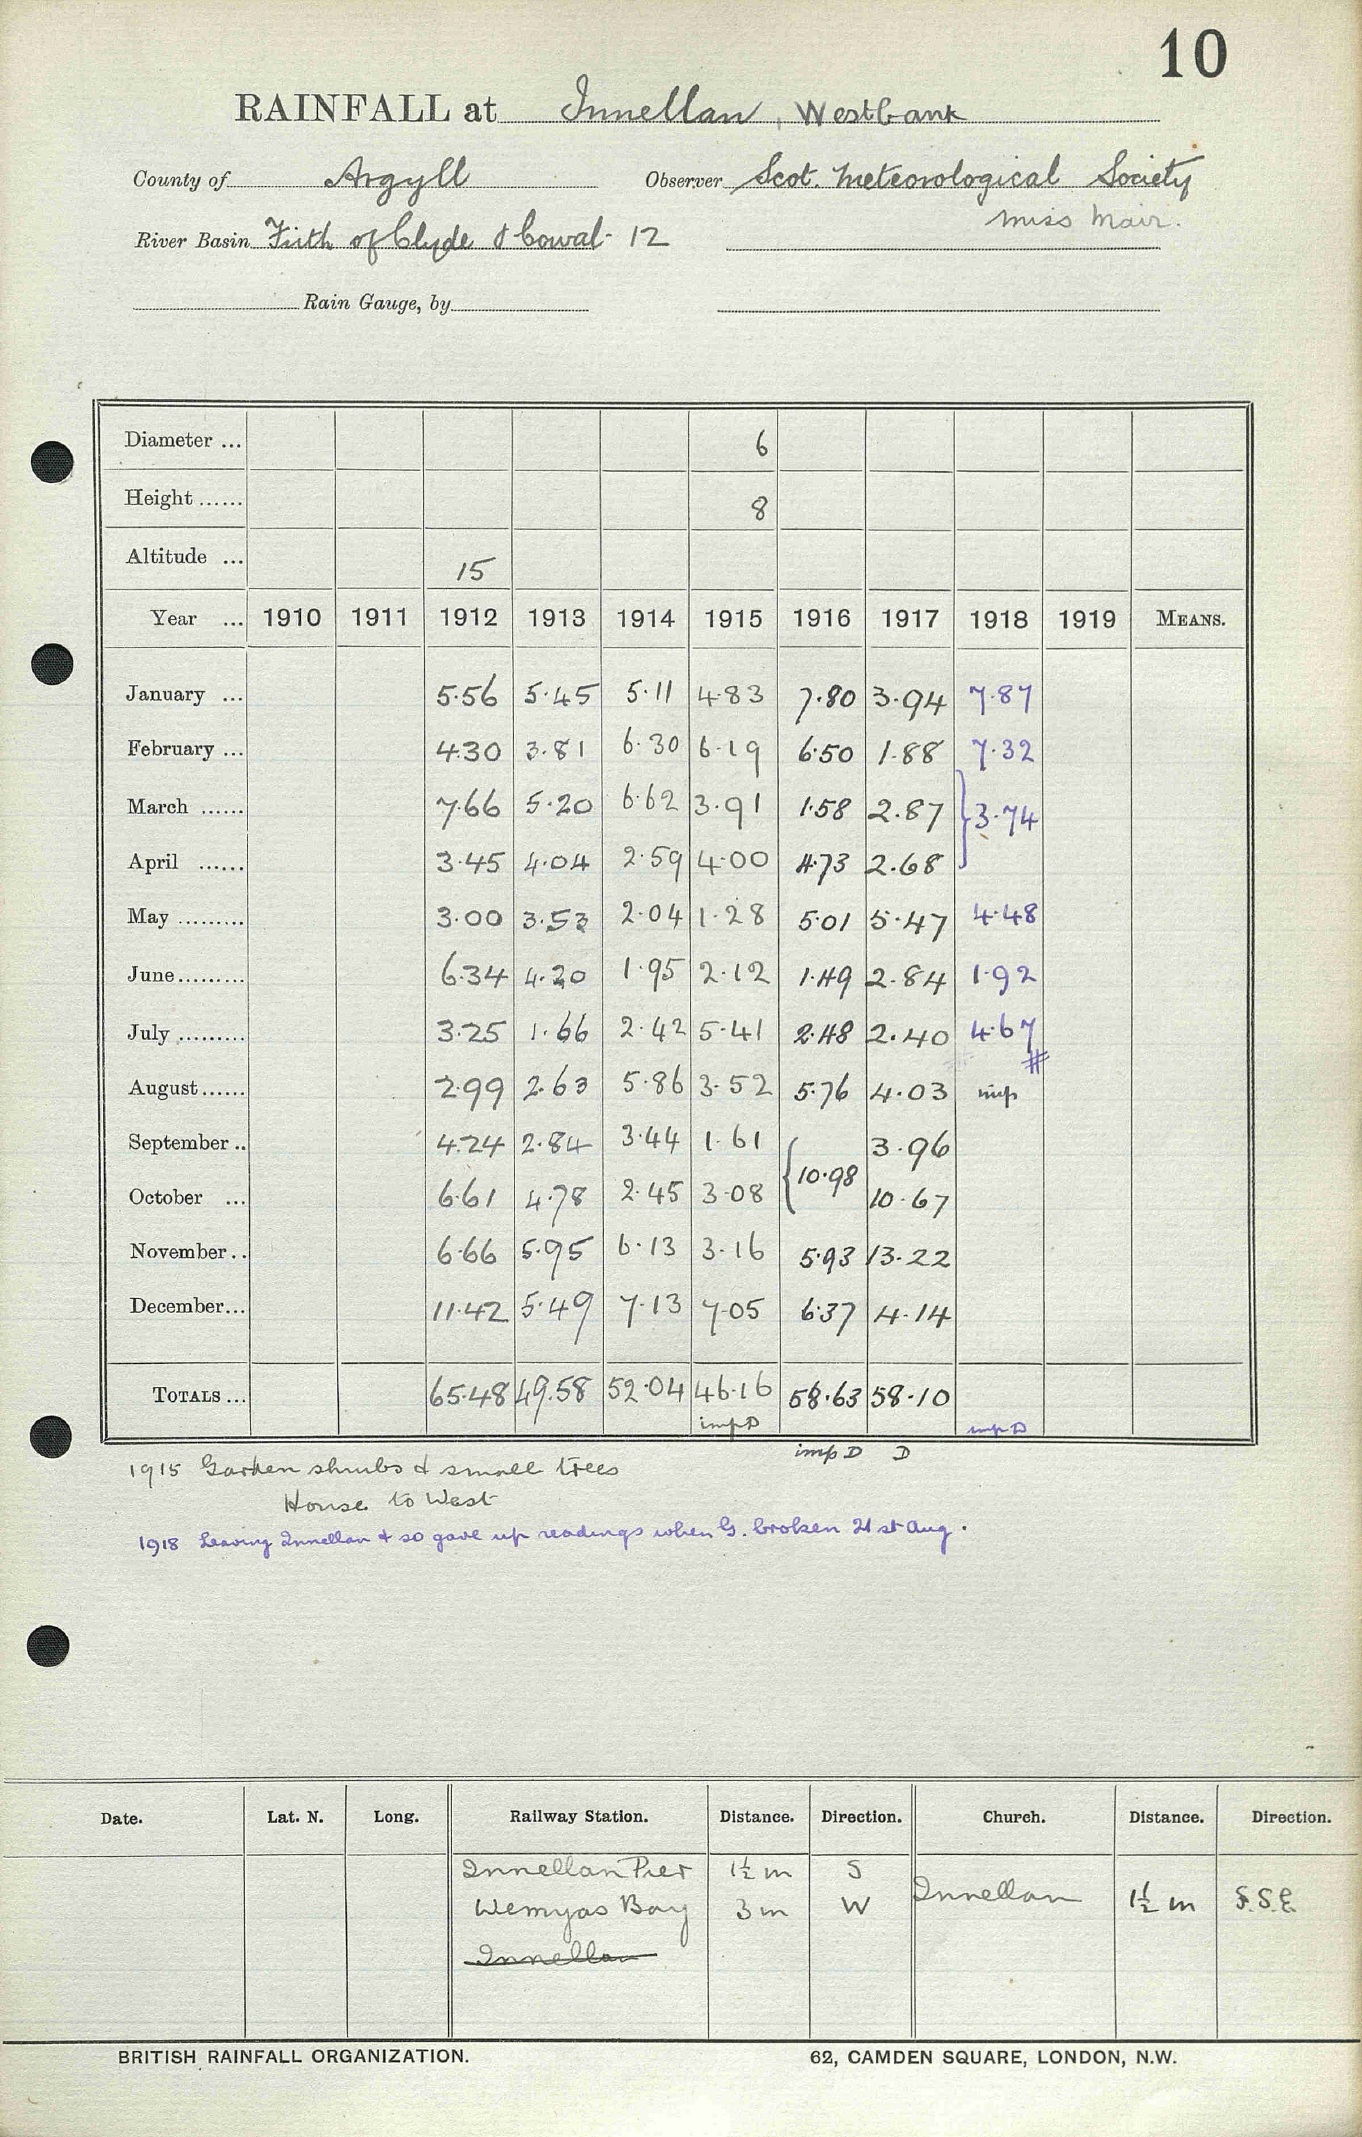 10
RAINFALL at Innellan, Westbank
County of Argyll Observer Scot. Meteorological Society
Miss Mair.
River Basin Firth of Clyde & Cowal - 12
Rain Gauge, by
Diameter ... 6
Height ...... 8
Altitude ... 15
Year ... 1910 1911 1912 1913 1914 1915 1916 1917 1918 1919 MEANS.
January ... 5.56 5.45 5.11 4.83 7.80 3.94 7.87
February ... 4.30 3.81 6.30 6.19 6.50 1.88 7.32
March ...... 7.66 5.20 6.62 3.91 1.58 2.87 } 3.74
April ...... 3.45 4.04 2.59 4.00 4.73 2.68
May ......... 3.00 3.53 2.04 1.28 5.01 5.47 4.48
June......... 6.34 4.20 1.95 2.12 1.49 2.84 1.92
July ......... 3.25 1.66 2.42 5.41 2.48 2.40 4.67
#
August...... 2.99 2.63 5.86 3.52 5.76 4.03 imp
September .. 4.24 2.84 3.44 1.61 { 10.98 3.96
October ... 6.61 4.78 2.45 3.08 10.67
November .. 6.66 5.95 6.13 3.16 5.93 13.22
December... 11.42 5.49 7.13 7.05 6.37 4.14
TOTALS ... 65.48 49.58 52.04 46.16 58.63 58.10
imp D imp D
imp D D
1915 Garden shrubs & small trees
House to West
1918 Leaving Innellan & so gave up readings when G. broken 21st Aug.
Date. Lat. N. Long. Railway Station. Distance. Direction. Church. Distance. Direction.
Innellan Pier 1½ m S
Wemyss Bay 3 m W Innellan 1½ m S.S.E.
Innellan
BRITISH RAINFALL ORGANIZATION. 62, CAMDEN SQUARE, LONDON, N.W.